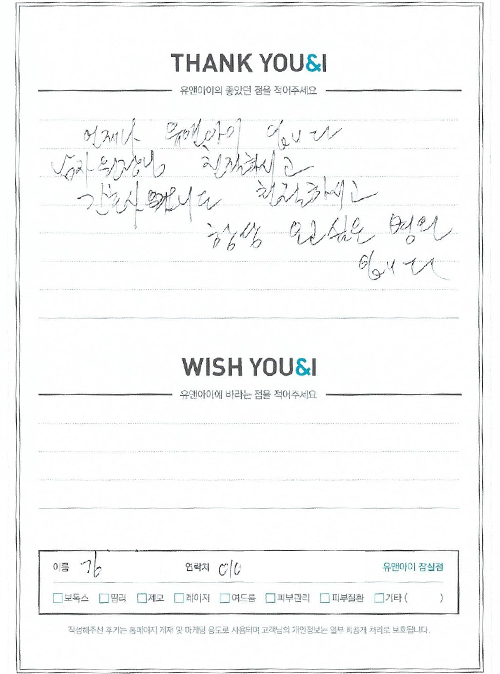 THANK YOU&I
유앤아이의 좋았던 점을 적어주세요
언제나 유앤아이 입니다
남자원장님 친절하시고
간호사 친절하세고
항상 오고싶은 병원
입니다
WISH YOU&I
유앤아이에 바라는 점을 적어주세요
이름 김 연락처 010 유앤아이 잠실점
보톡스 필러 제모 레이저 여드름 피부관리 피부질환 기타 ( )
작성해주신 후기는 홈페이지 게재 및 마케팅 용도로 사용되며 고객님의 개인정보는 일부 비공개 처리로 보호됩니다.